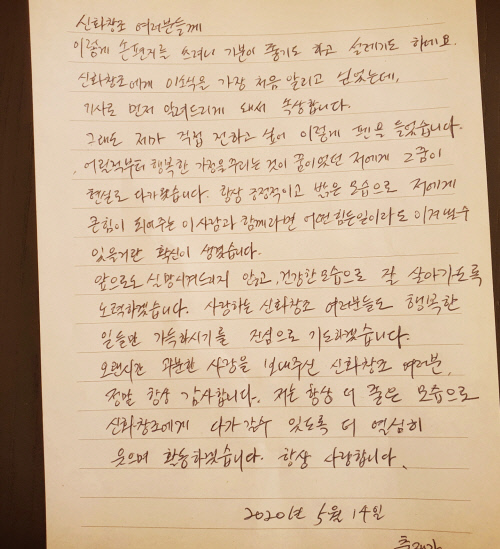 신화창조 여러분들께
이렇게 손편지를 쓰려니 기분이 좋기도 하고 설레기도 하네요.
신화창조에게 이소식을 가장 처음 알리고 싶었는데,
기사로 먼저 알려드리게 돼서 속상합니다.
그래도 제가 직접 전하고 싶어 이렇게 펜을 들었습니다.
어릴적부터 행복한 가정을 꾸리는 것이 꿈이었던 저에게 그 꿈이
현실로 다가왔습니다. 항상 긍정적이고 밝은 모습으로 저에게
큰힘이 되어주는 이 사람과 함께라면 어떤 힘든일이라도 이겨낼수
있을거란 확신이 생겼습니다.
앞으로도 실망시켜드리지 않고, 건강한 모습으로 잘 살아가도록
노력하겠습니다. 사랑하는 신화창조 여러분들도 행복한
일들만 가득하시기를 진심으로 기도하겠습니다.
오랜시간 과분한 사랑을 보내주신 신화창조 여러분,
정말 항상 감사합니다. 저는 항상 더 좋은 모습으로
신화창조에게 다가갈수 있도록 더 열심히
웃으며 활동하겠습니다. 항상 사랑합니다.
2020년 5월 14일